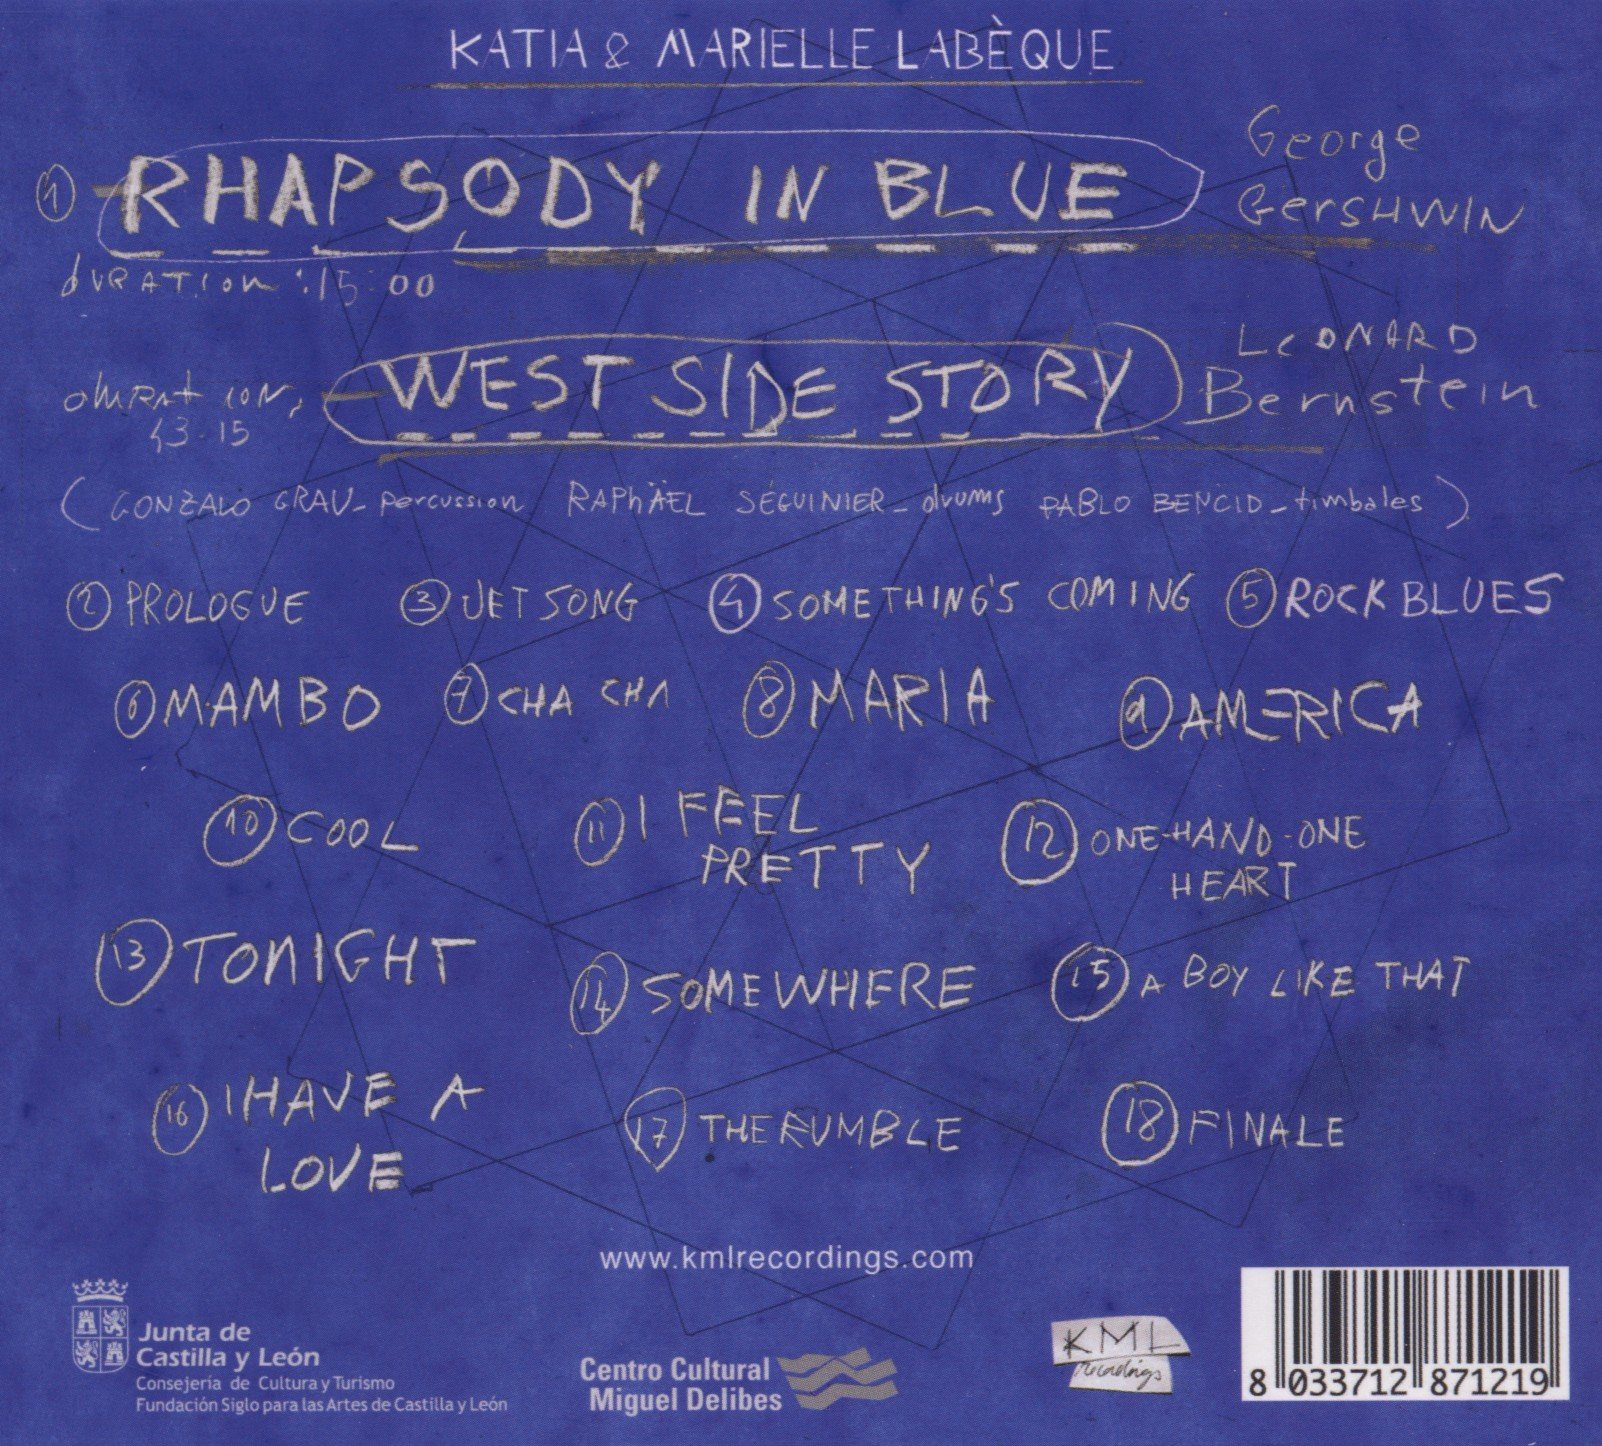 KATIA & MARIELLE LABÈQUE
1 RHAPSODY IN BLUE
George
GERSHWIN
DURATION :15:00
WEST SIDE STORY
LEONARD
Bernstein
43.15
(GONZALO GRAU_percussion RAPhÄEL SÉGUINIER_drums PABLO BENCID_timbales)
2 PROLOGUE 3 JET SONG 4 SOMETHING'S COMING 5 ROCK BLUES
6 MAMBO 7 CHA CHA 8 MARIA 9 AMERICA
10 COOL 11 I FEEL
PRETTY
12 ONE-HAND-ONE
HEART
13 TONIGHT 14 SOMEWHERE 15 A BOY LIKE THAT
16 I HAVE A
LOVE
17 THE RUMBLE 18 FINALE
www.kmlrecordings.com
Junta de
Castilla y León
Consejería de Cultura y Turismo
Fundación Siglo para las Artes de Castilla y León
Centro Cultural
Miguel Delibes
KML
recordings
8 033712 871219